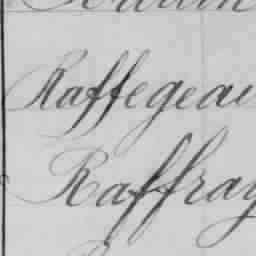 Raffegeau
Raffray